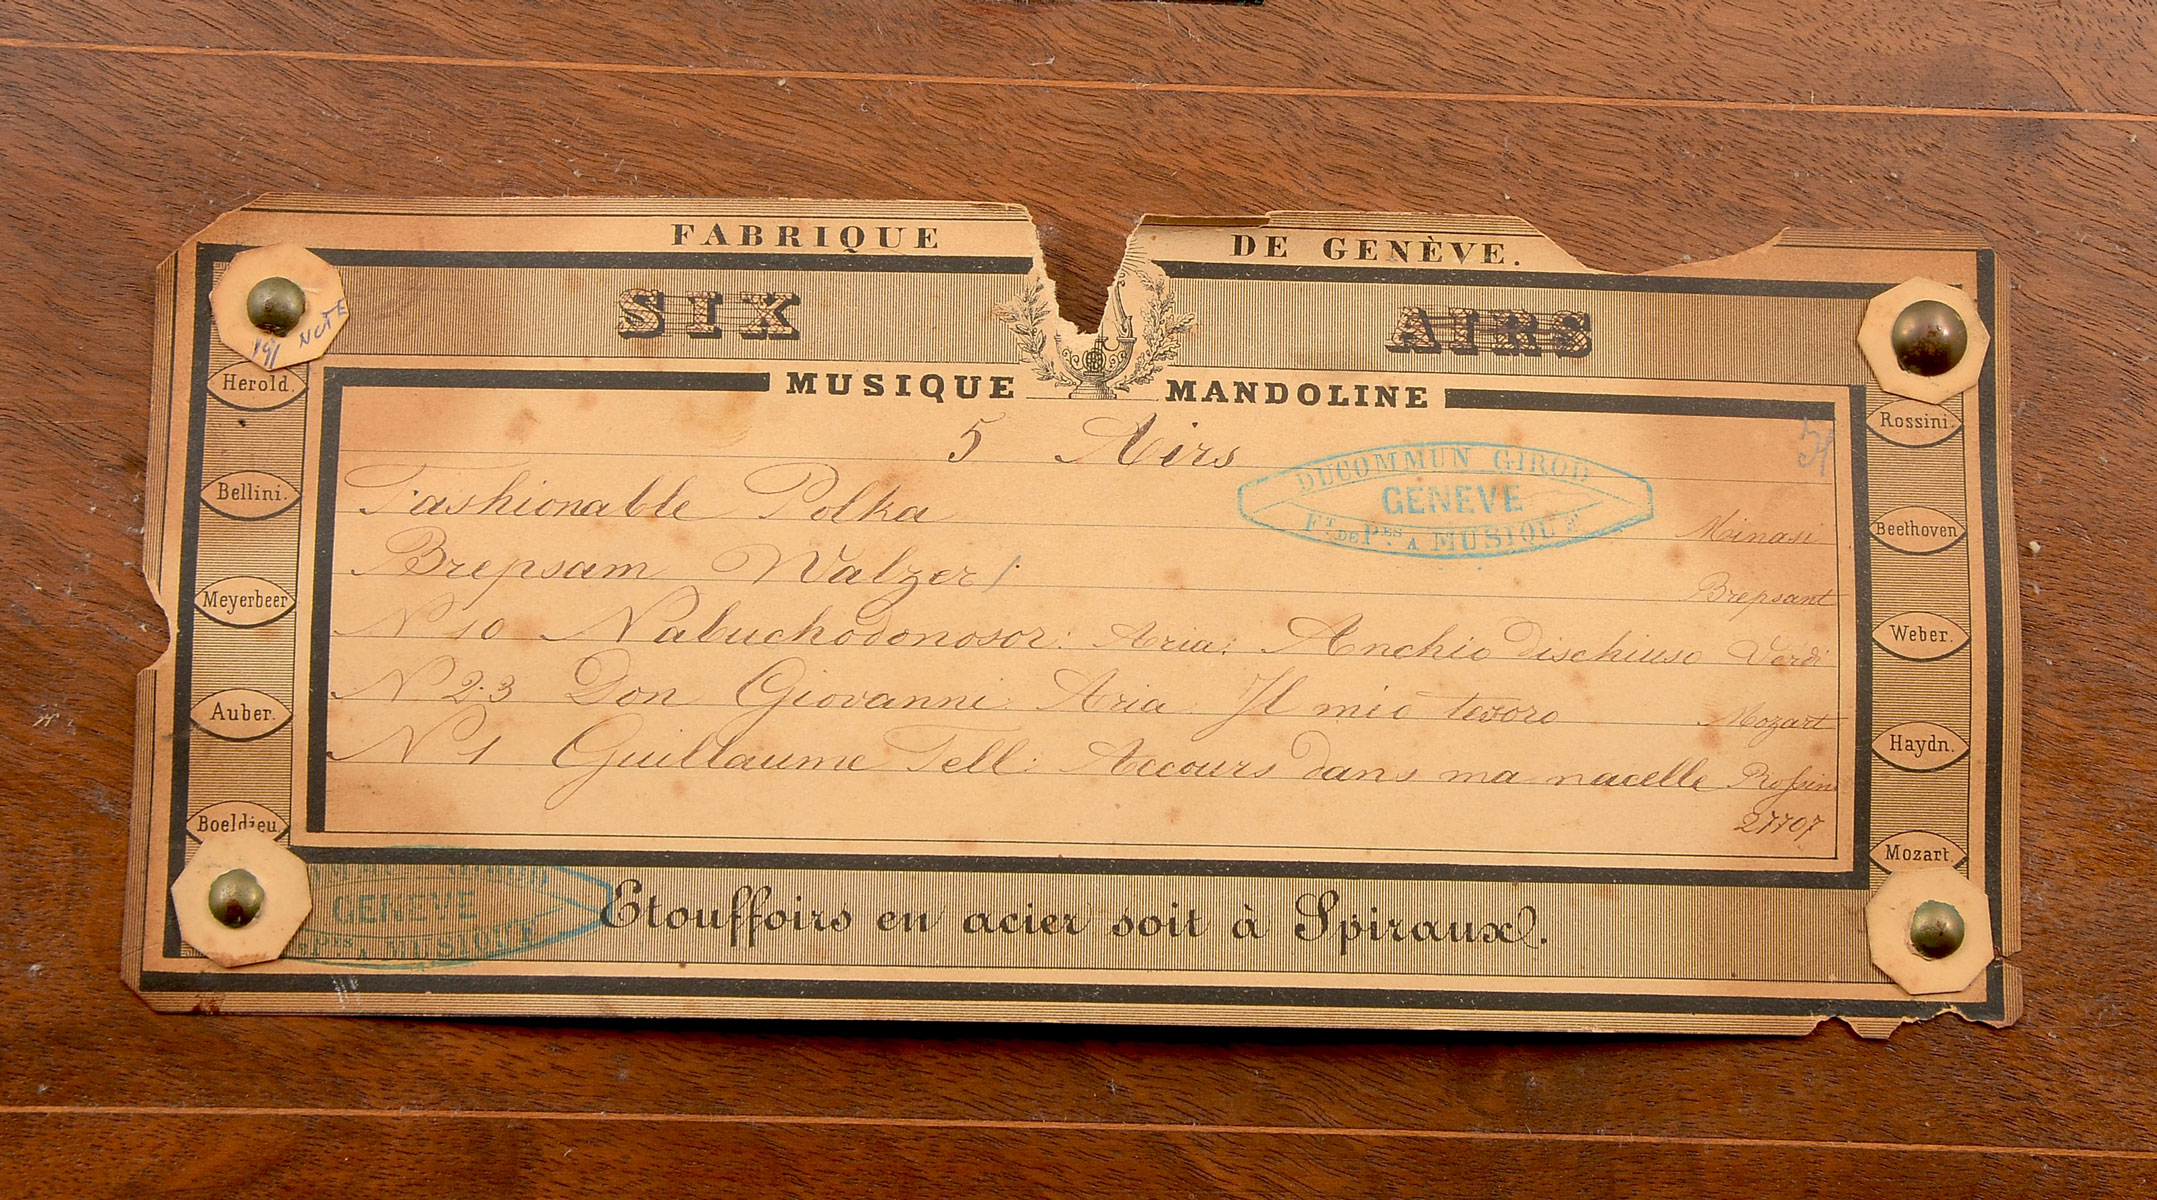 FABRIQUE DE GENÈVE.
SIX AIRS
MUSIQUE MANDOLINE
5 Airs
Fashionable Polka Minasi
Brepsam Walzer Brepsant
N 10 Nabuchodonosor: Aria: Anchio dischiuso Verdi
N 23 Don Giovanni Aria Il mio tesoro Mozart
N 1 Guillaume Tell: Accours dans ma nacelle Rossini
27707
DUCOMMUN GIROD
GENEVE
FT. DE PES A MUSIQUE
NOTE
Herold.
Bellini.
Meyerbeer
Auber.
Boeldieu
Rossini.
Beethoven
Weber.
Haydn.
Mozart.
GENEVE
PES A MUSIQUE
Etouffoirs en acier soit à Spiraux.